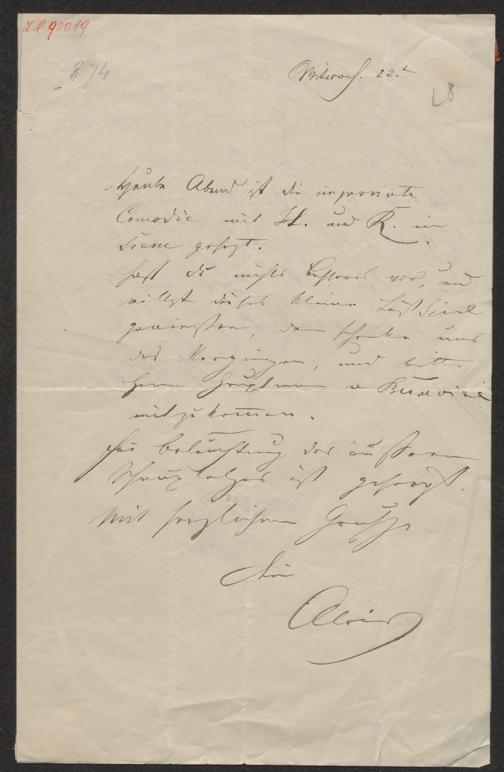 I.N 90019
874
Mitwoch. 23.t
L8
Heute Abend ist die improvisirte
Comödie mit H. und K. in
Scene gesezt.
Hast du nichts besseres vor, und
willst dieses kleine Lustspiel
genießen, dann schenke uns
das Vergnügen, und bitte
Herrn Hauptmann v
mitzukommen.
Für Beleuchtung des äußeren
ist gesorgt.
Mit herzlichem Gruße
Dein
Alois